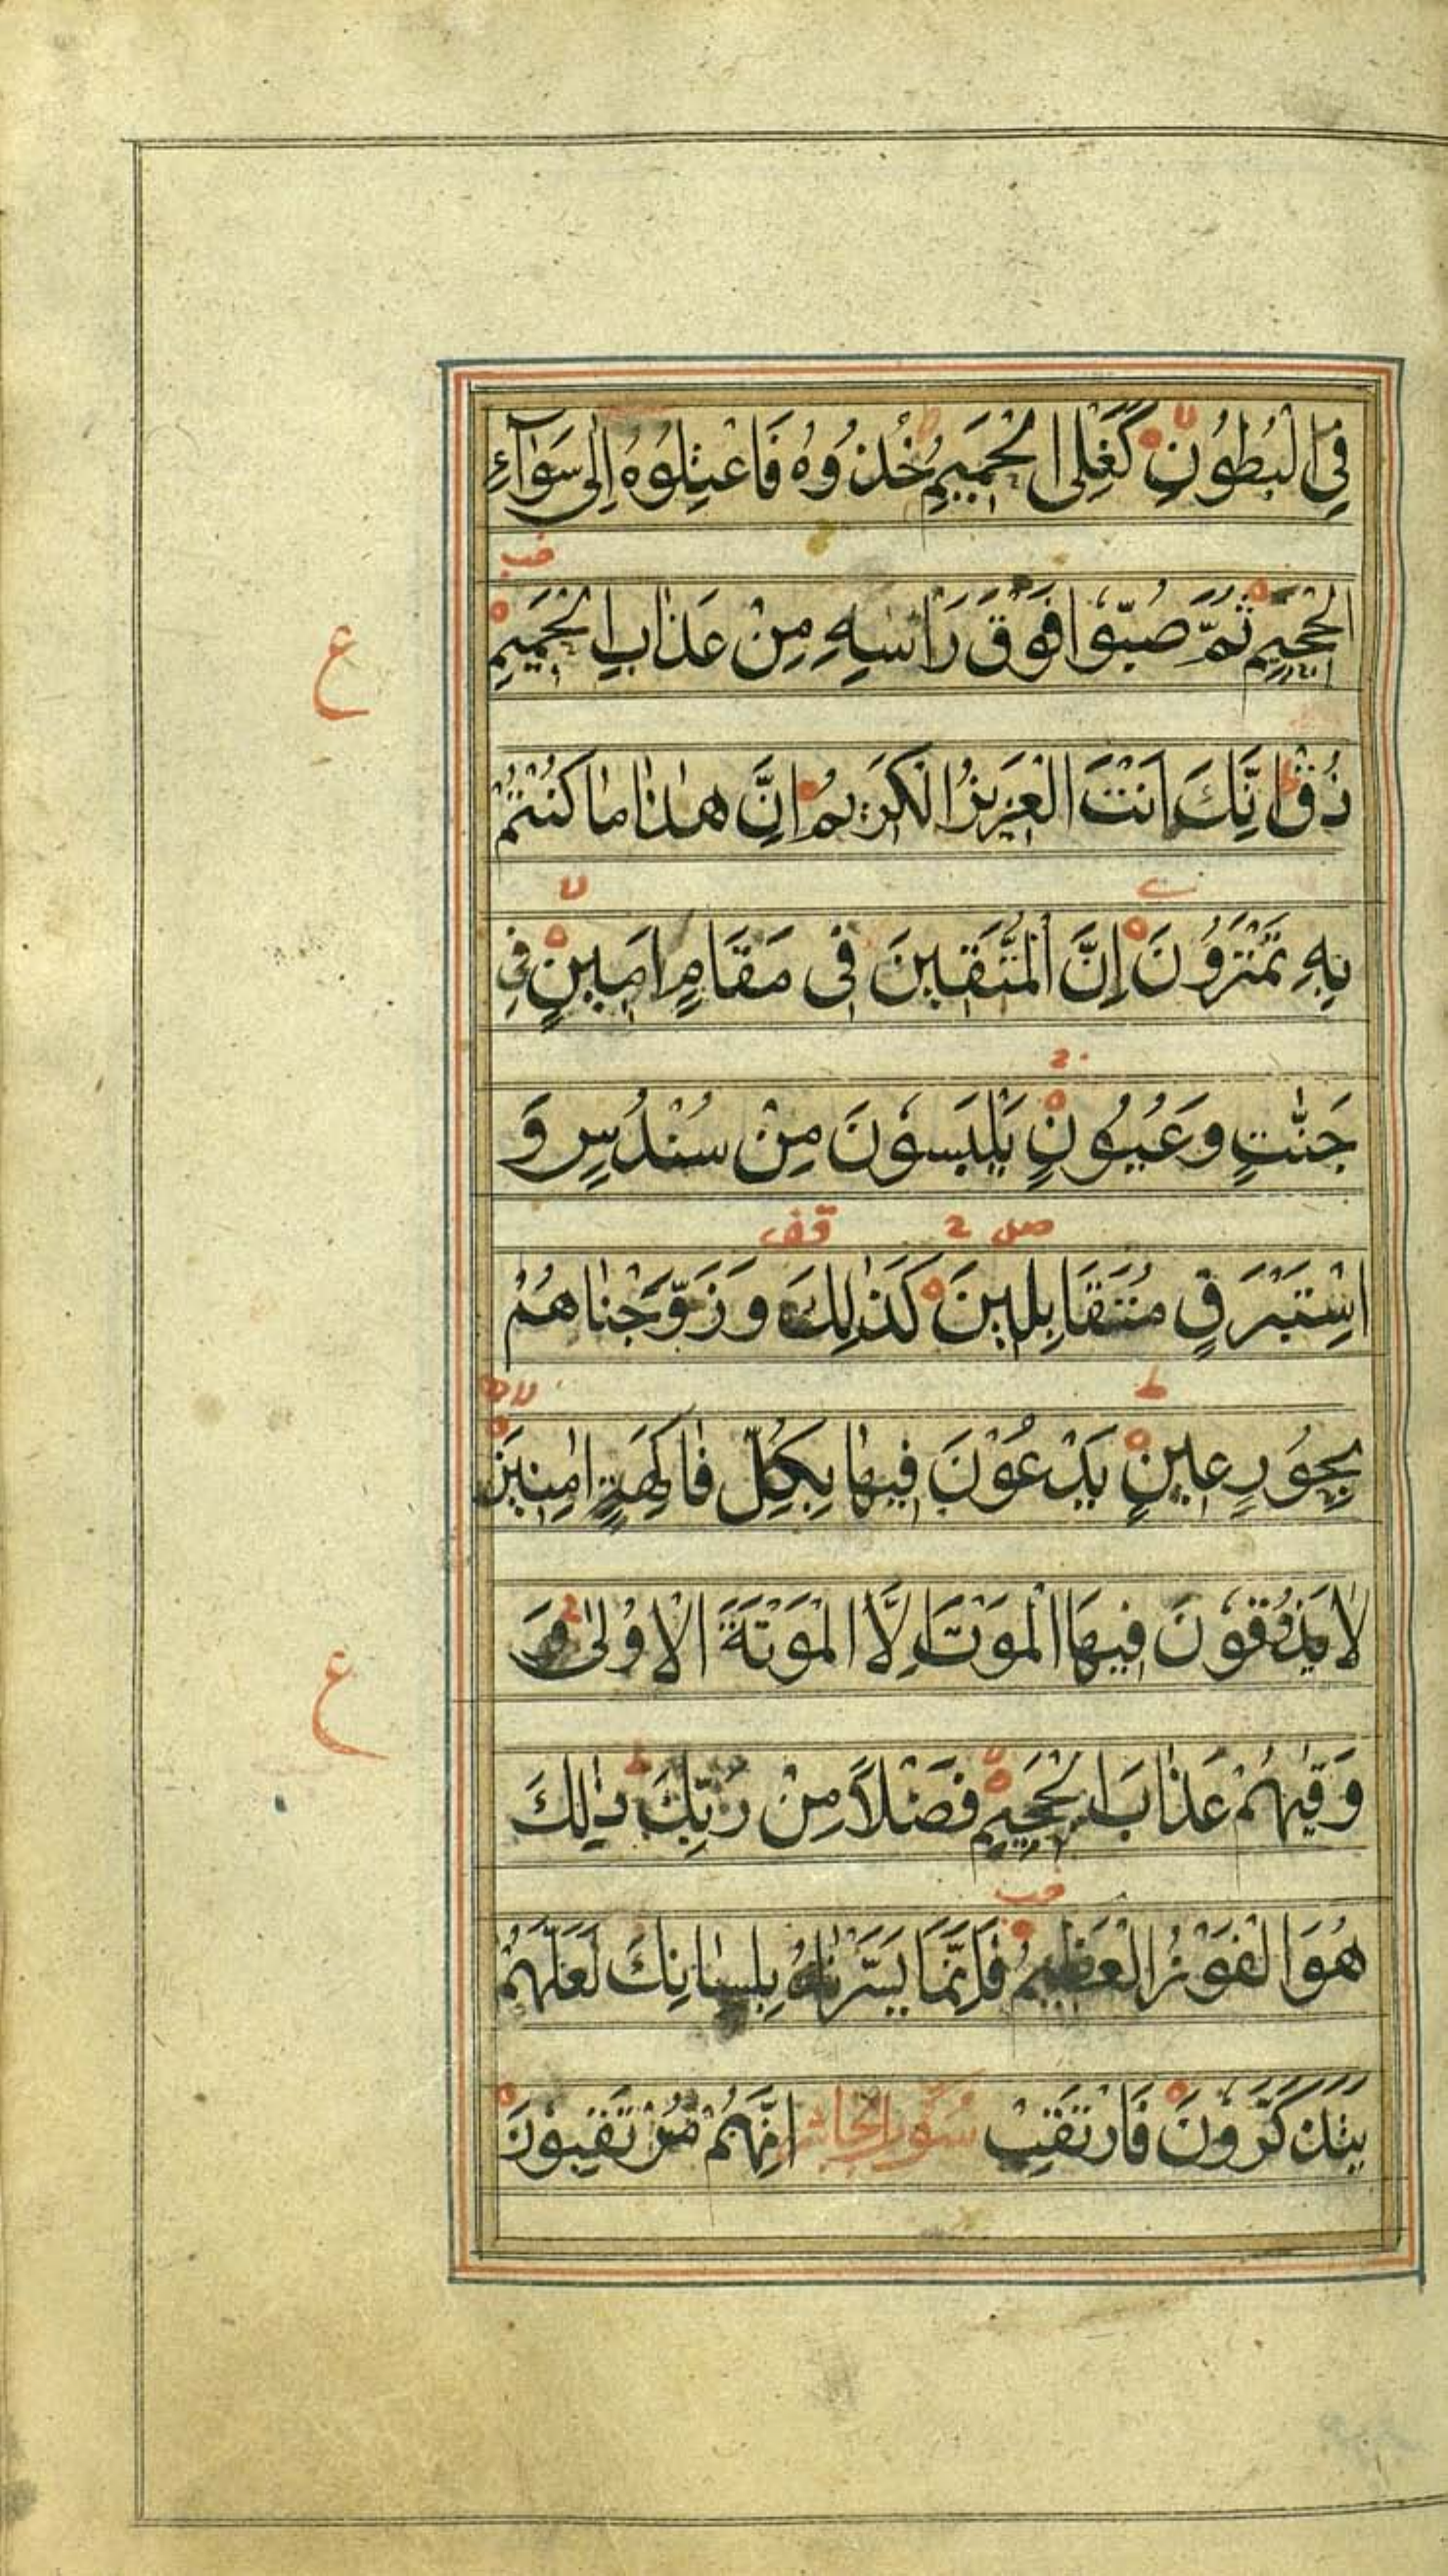 فِي الْبُطُوْنِ كَغَلْيِ الْحَمِيْمِ خُذُوْهُ فَاعْتِلُوْهُ اِلٰى سَوَآءِ
الْجَحِيْمِ ثُمَّ صُبُّوْا فَوْقَ رَاْسِهِ مِنْ عَذَابِ الْحَمِيْمِ
ذُقْ اِنَّكَ اَنْتَ الْعَزِيْزُ الْكَرِيْمُ اِنَّ هٰذَا مَا كُنْتُمْ
بِهِ تَمْتَرُوْنَ اِنَّ الْمُتَّقِيْنَ فِى مَقَامٍ اَمِيْنٍ فِى
جَنّٰتٍ وَعُيُوْنٍ يَلْبَسُوْنَ مِنْ سُنْدُسٍ وَ
اِسْتَبْرَقٍ مُتَقَابِلِيْنَ كَذٰلِكَ وَزَوَّجْنَاهُمْ
بِحُوْرٍ عِيْنٍ يَدْعُوْنَ فِيْهَا بِكُلِّ فَاكِهَةٍ اٰمِنِيْنَ
لَا يَذُوْقُوْنَ فِيْهَا الْمَوْتَ اِلَّا الْمَوْتَةَ الْاُوْلٰى وَ
وَقٰيهُمْ عَذَابَ الْجَحِيْمِ فَضْلًا مِنْ رَبِّكَ ذٰلِكَ
هُوَ الْفَوْزُ الْعَظِيْمُ فَاِنَّمَا يَسَّرْنَاهُ بِلِسَانِكَ لَعَلَّهُمْ
يَتَذَكَّرُوْنَ فَارْتَقِبْ سُوْرَة الجاثية اِنَّهُمْ مُرْتَقِبُوْنَ
ع
ع